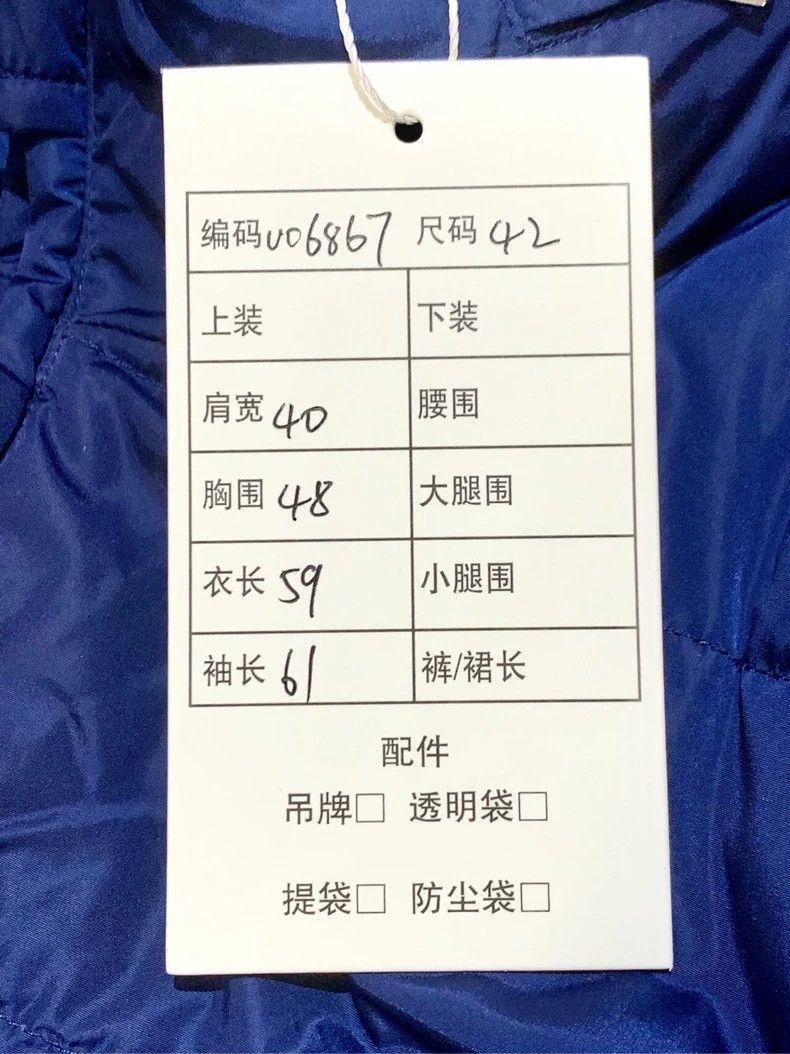 编码U06867 尺码42
上装 下装
肩宽40 腰围
胸围48 大腿围
衣长59 小腿围
袖长61 裤/裙长
配件
吊牌□ 透明袋□
提袋□ 防尘袋□